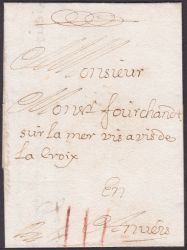 Monsieur
Monsr fourchandt
sur la mer vis a vis de
la Croix
En
Anvers